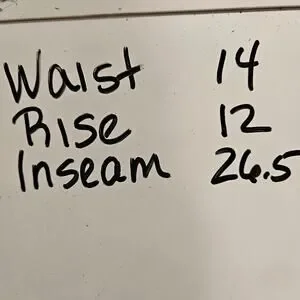 Waist 14
Rise 12
Inseam 26.5